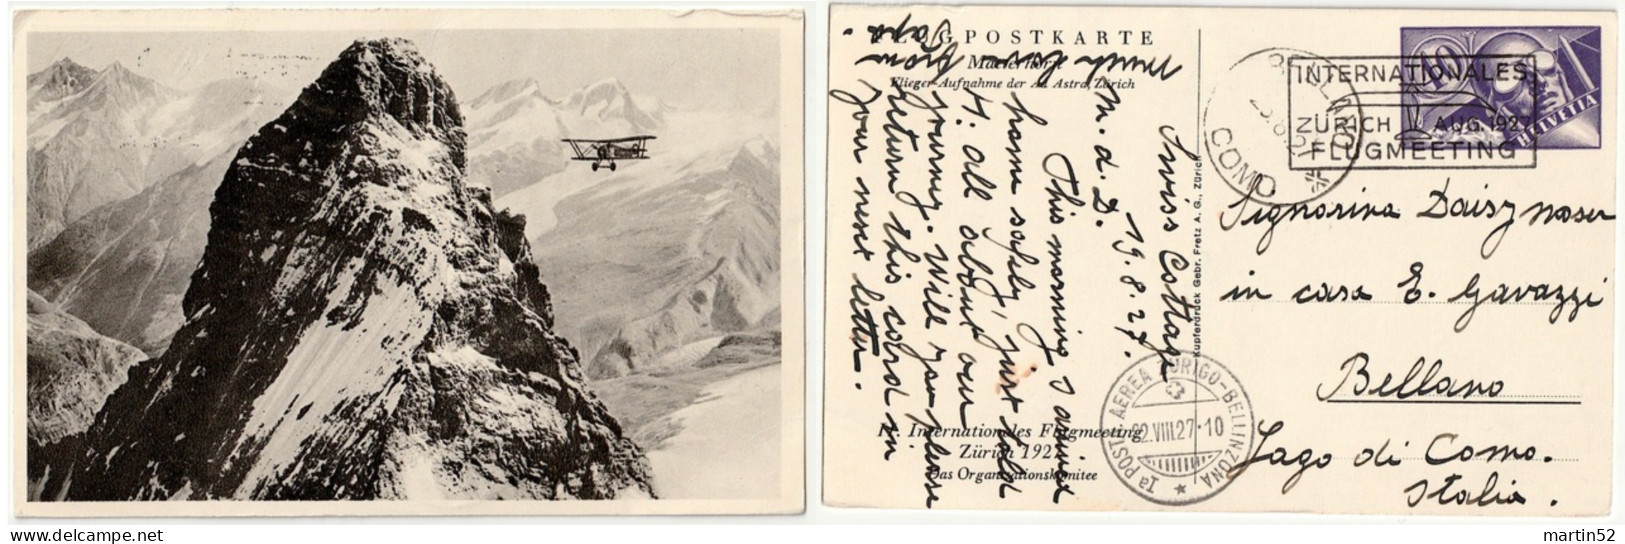 FLUGPOSTKARTE
Matterhorn
Flieger-Aufnahme der Ad Astra, Zürich
Swiss Cottage
M. d. D. 19. 8. 27.
This morning I arrived
home safely, just told
H. all about our
journey. Will you please
return this card in
your next letter.
much love from
Kupferdruck Gebr. Fretz A. G., Zürich
Internationales Flugmeeting
Zürich 1927
Das Organisationskomitee
40
HELVETIA
INTERNATIONALES
ZÜRICH AUG. 1927
FLUGMEETING
BELLANO
COMO
Signorina Daisy Moser
in casa E. Gavazzi
Bellano
Lago di Como.
Italia.
Iª POSTA AEREA ZURIGO-BELLINZONA
22.VIII.27-10
martin52